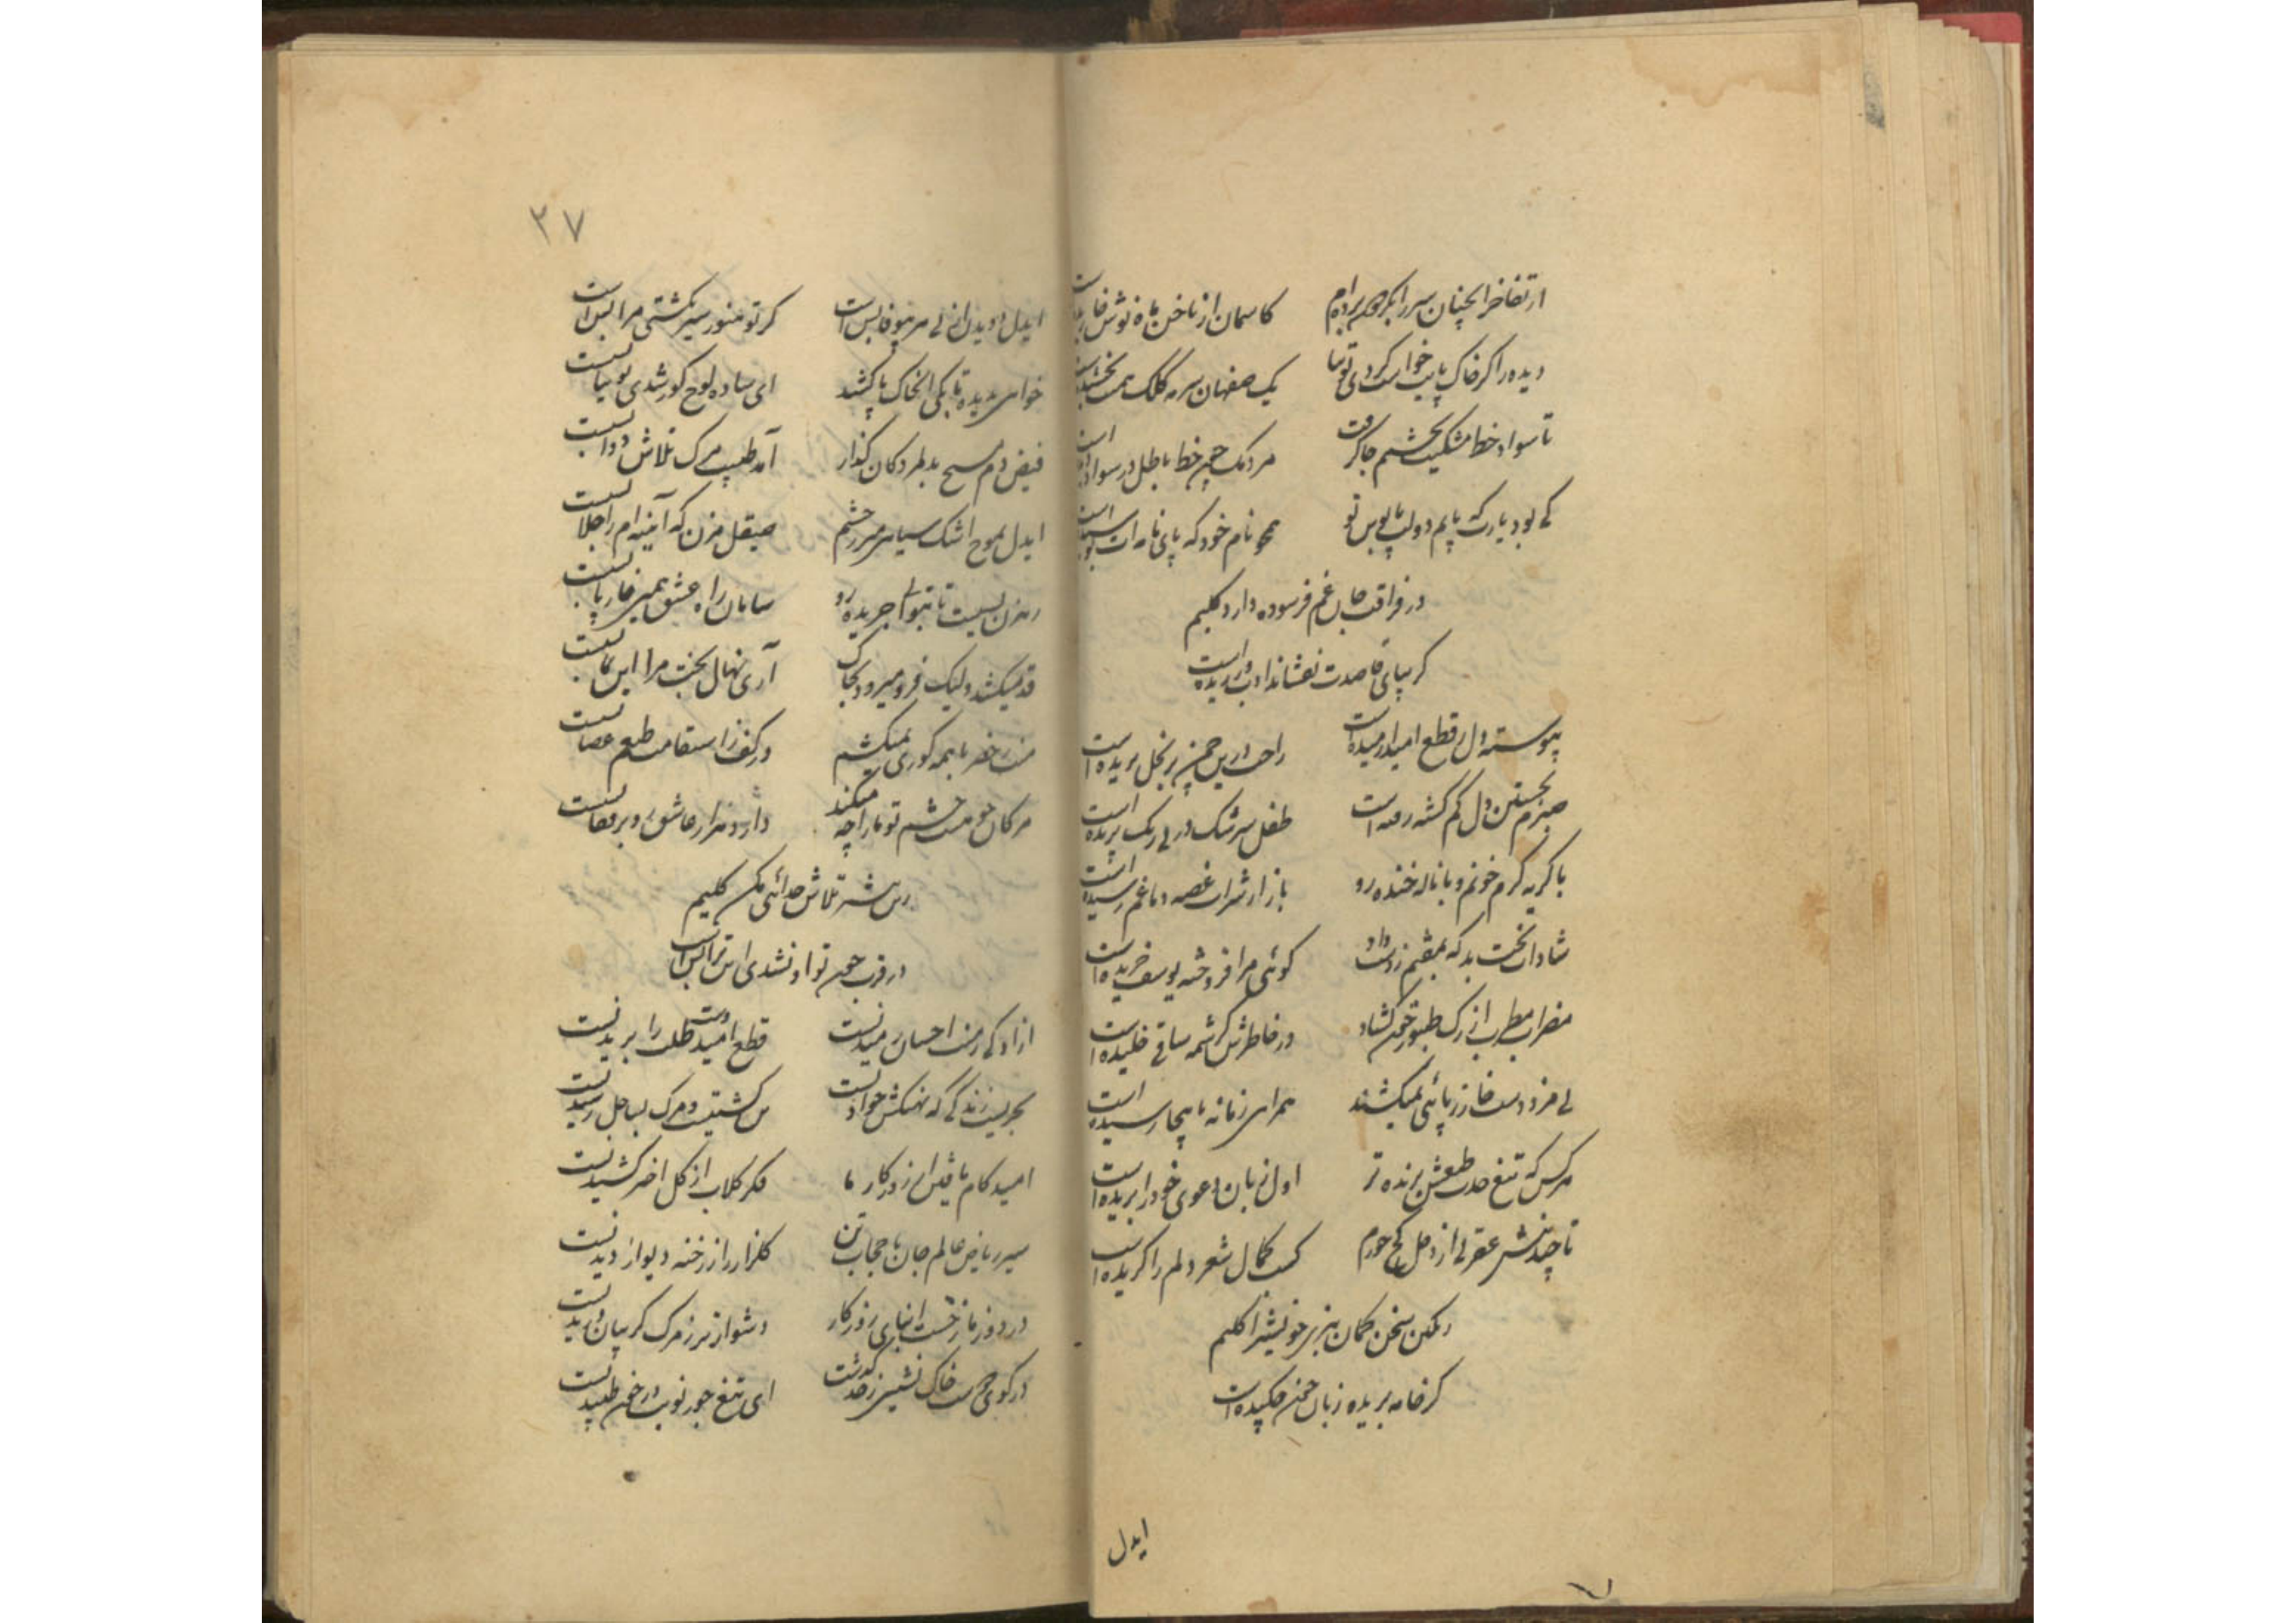 از تفاخر انچنان سر را بگردون برده‌ام کاسمان از ناخن ماه نوش
دیده را گر خاک پایت خواست کردی توتیا یک صفهان سرمه کلک
تا سواد خط مشکینت بچشمم جا گرفت مردمک چون خط باطل در سواد
کی بود یارب که یابم دولت پابوس تو همچو نام خود که پای نامه‌ات
در فراقت جان غم فرسوده دارد کلیم
گر بپای قاصدت نفشاند
پیوسته دل ز قطع امید آرمیده است راحت درین چمن بر نخل بریده است
صبرم بجستن دل گم گشته رفته است طفل سرشک در پی رنگ پریده است
با گریه گرم خونم و با ناله خنده رو باز از شراب غصه دماغم رسیده است
شادان بخت بد که بهیچم ز دست داد گوئی مرا فروخته یوسف خریده است
مضراب مطرب از رگ طنبور خون گشاد در خاطرش کرشمه ساقی خلیده است
بی مزد دست خار ز پائی نمیکشند همراهی زمانه باینجا رسیده است
هر کس که تیغ حدت طبعش برنده‌تر اول زبان دعوی خود را بریده است
تا چند نیش عقرب از اهل کج خورم کسب کمال شعر دلم را گزیده است
سخن گمان هنر بر خویش را کلیم
کز خامه بریده زبان خون چکیده است
ایدل
۳۷
ایدل دویدن از پی هر بیوفا بس است گر تو هنوز سیر نگشتی مرا بس است
خواهی بدیده تا بکی آن خاک پا کشند ای ساده لوح کور شدی توتیا بس است
فیض دم مسیح بدلمردگان گذار آمد طبیب مرگ تلاش دوا بس است
ایدل بموج اشک سیاهی مبر ز چشم صیقل مزن که آینه‌ام را جلا بس است
رهزن بسیست تا بتوانی جریده رو سامان راه عشق همین خار پا بس است
قد میکشد ولیک فرو میرود بخاک آری نهال بخت مرا این نما بس است
منت ز خضر با همه کوری نمیکشم در کف ز استقامت طبعم عصا بس است
مژگان چو هست چشم تو ناراج میکند دارد هزار عاشق و بر بس است
تلاش جدائی مکن کلیم
در قرب چون تو او نشدی این ترا بس است
آزادگی ز منت احسان رمیدنست قطع امید دست طلب را بریدنست
بحریست زندگی که نهنگش حوادثست تن کشتیست و مرگ بساحل رسیدنست
امید کام یافتن از روزگار ما فکر گلاب از گل اخگر کشیدنست
سیر ریاض عالم جان با حجاب تن گلزار را ز رخنه دیوار دیدنست
در دوزخم ز رخت روزگار دشوارتر ز مرگ گریبان دریدنست
در کوی خاک نشینی ز حد گذشت ای تیغ جور نوبت در خون طپیدنست